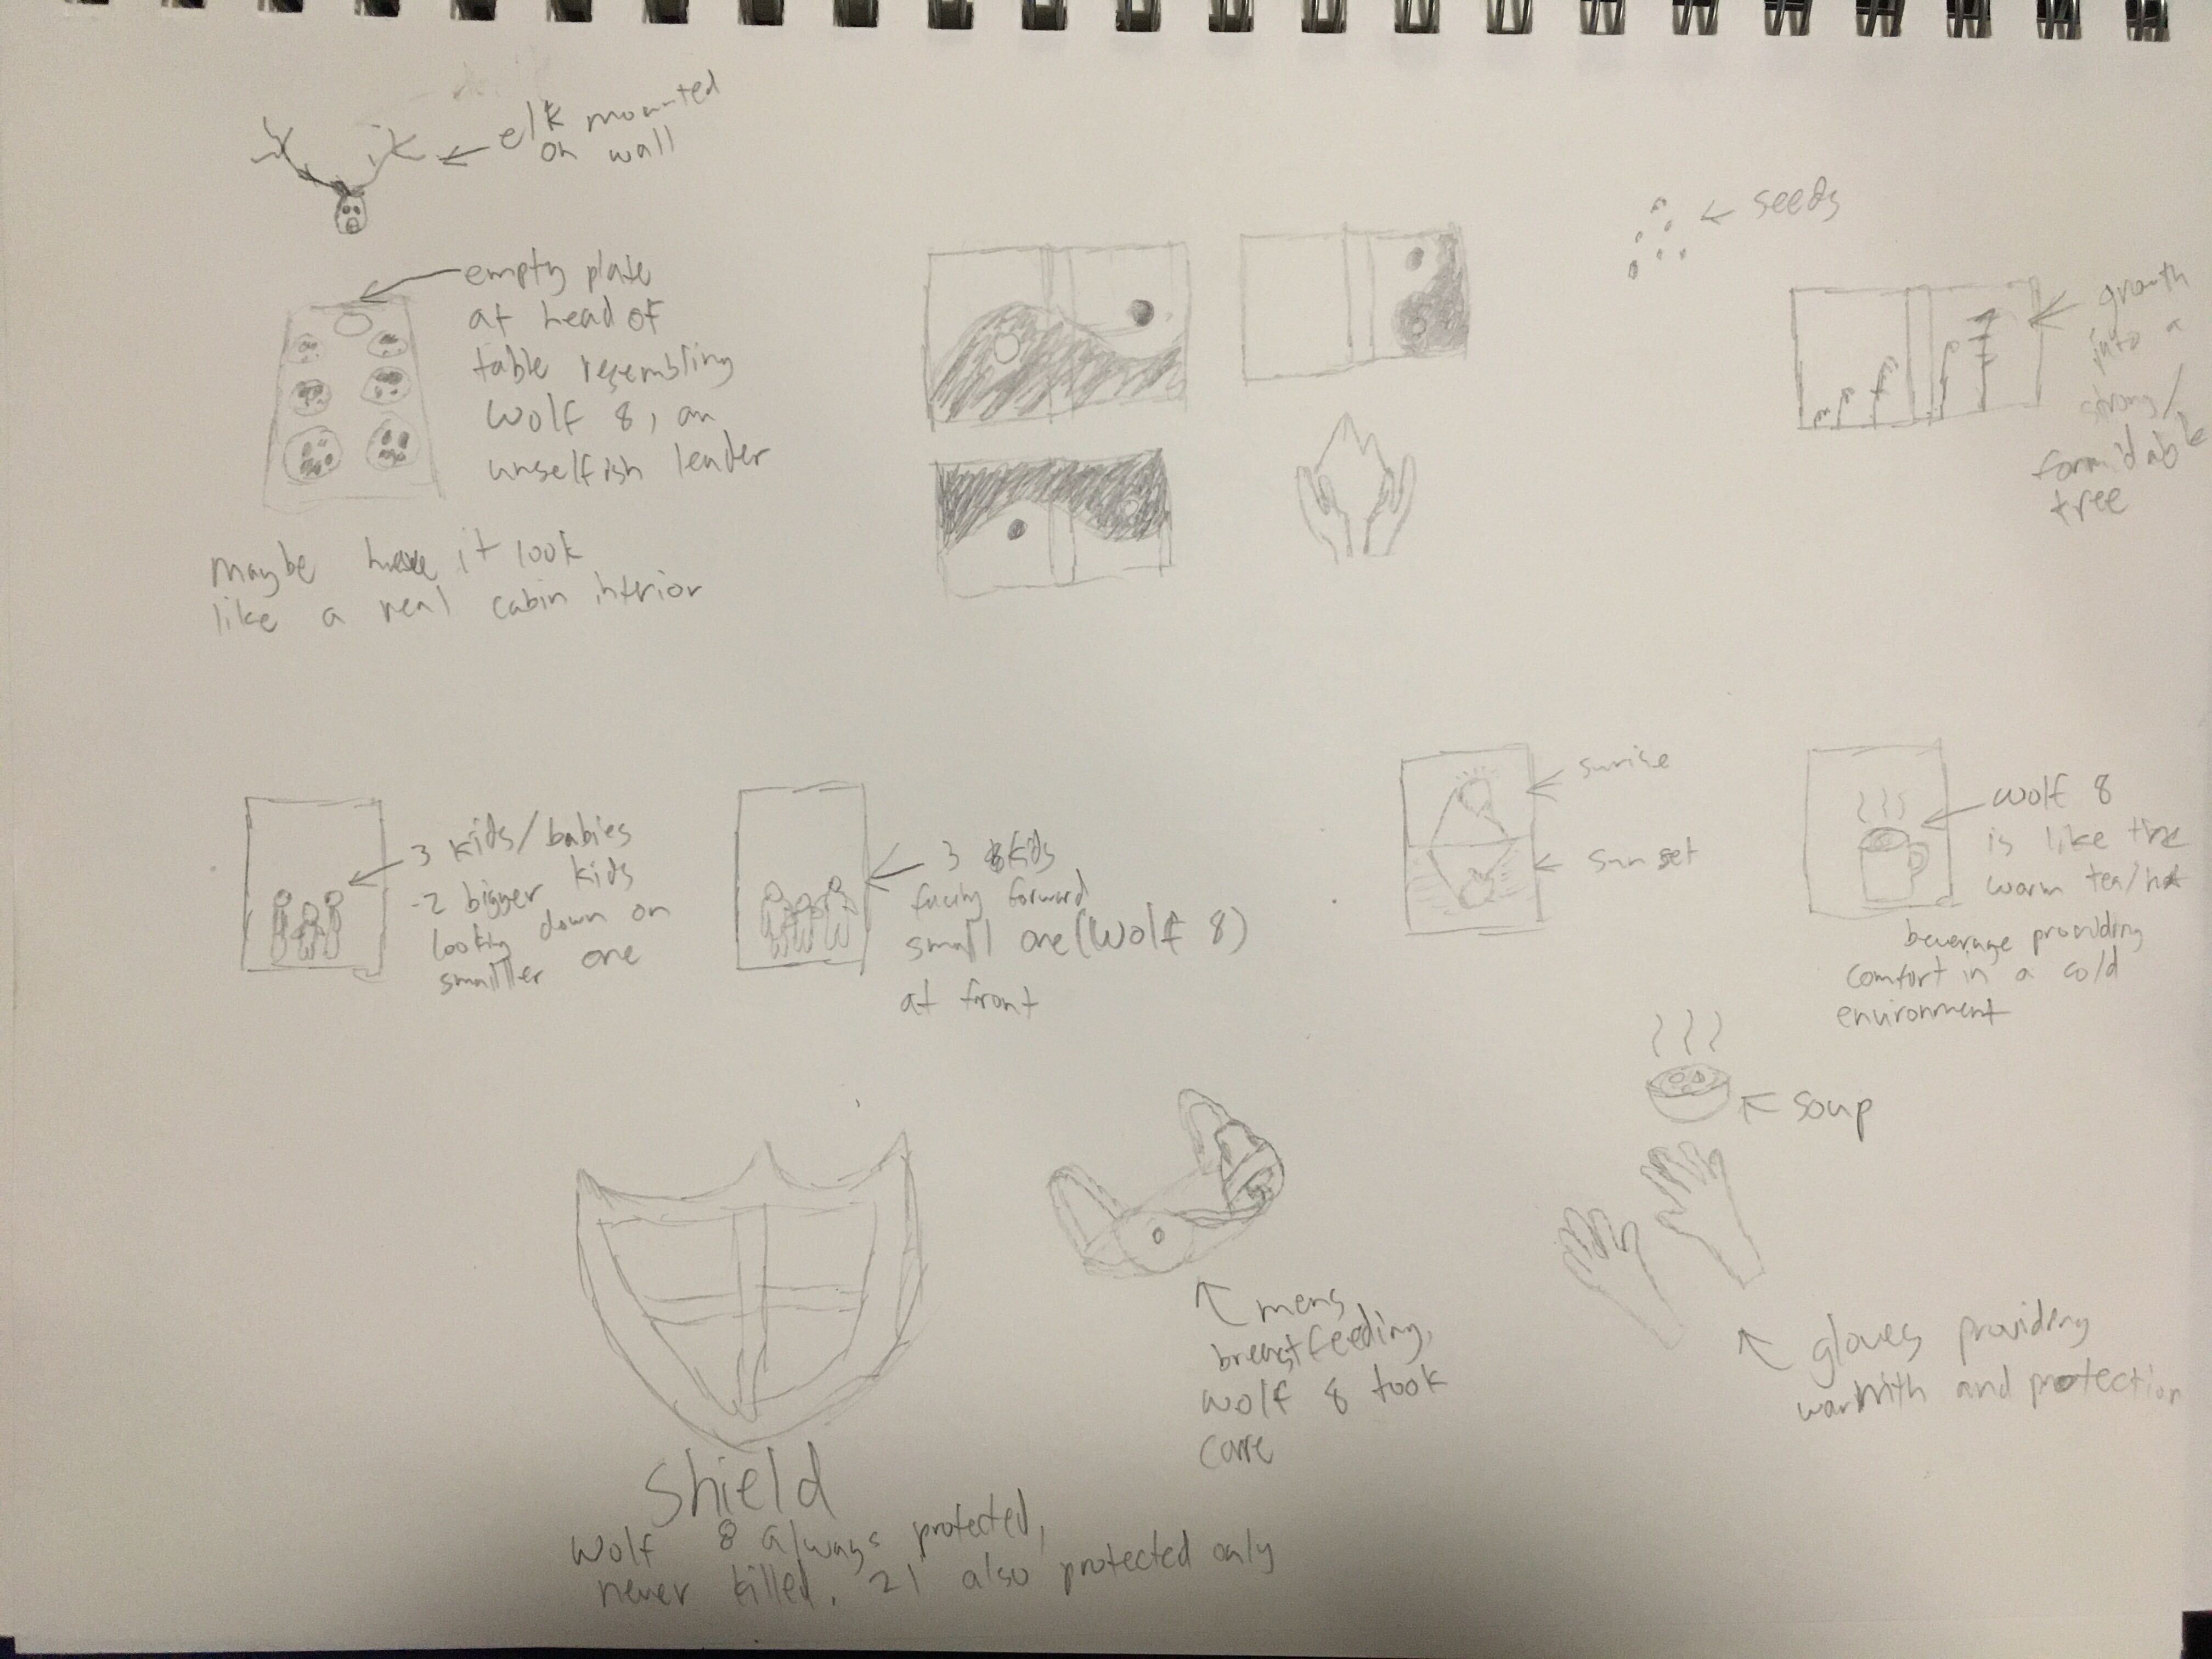 elk mounted
on wall
empty plate
at head of
table resembling
Wolf 8, an
unselfish leader
maybe have it look
like a real cabin interior
seeds
growth
into a
strong/
formidable
tree
3 kids/babies
-2 bigger kids
looking down on
smallller one
3 kids
facing forward
small one (Wolf 8)
at front
sunrise
sunset
Wolf 8
is like the
warm tea/hot
beverage providing
comfort in a cold
environment
soup
gloves providing
warmth and protection
mens
breastfeeding,
wolf 8 took
care
Shield
Wolf 8 always protected,
never killed. 21 also protected only